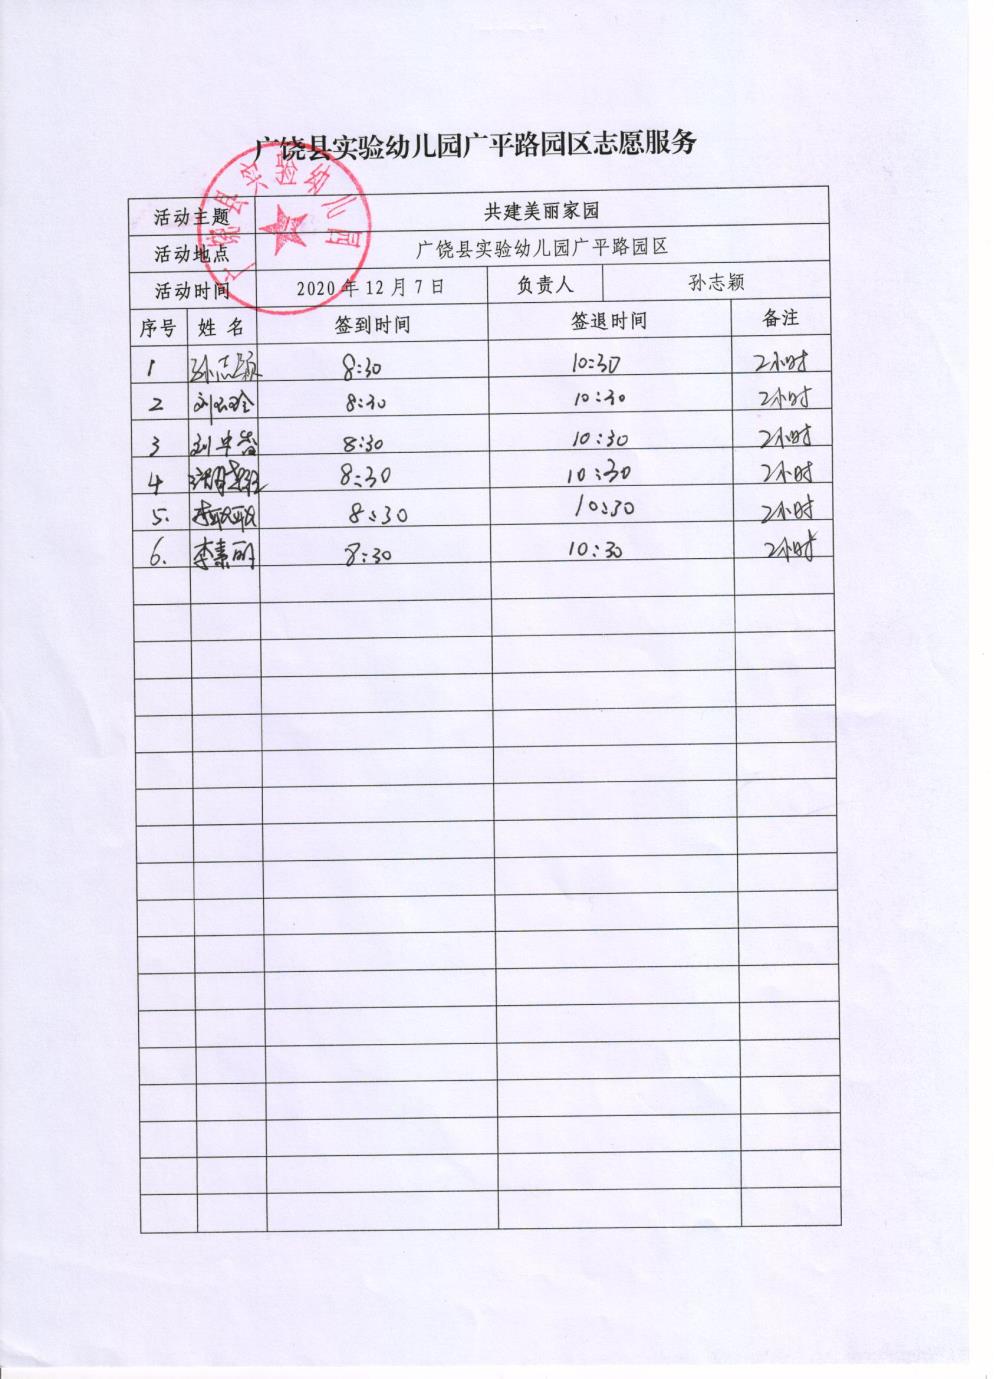 广饶县实验幼儿园广平路园区志愿服务
广饶县实验幼儿园
活动主题 共建美丽家园
活动地点 广饶县实验幼儿园广平路园区
活动时间 2020年12月7日 负责人 孙志颖
序号 姓名 签到时间 签退时间 备注
1 孙志颖 8:30 10:30 2小时
2 8:30 10:30 2小时
3 8:30 10:30 2小时
4 8:30 10:30 2小时
5. 8:30 10:30 2小时
6. 李素丽 8:30 10:30 2小时